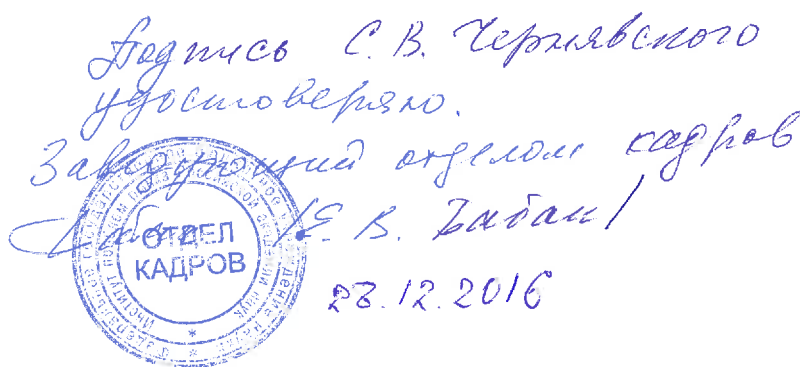 Подпись С. В. Чернявского
удостоверяю.
Заведующий отделом кадров
/Е. В. Бабак/
ОТДЕЛ
КАДРОВ
23.12.2016